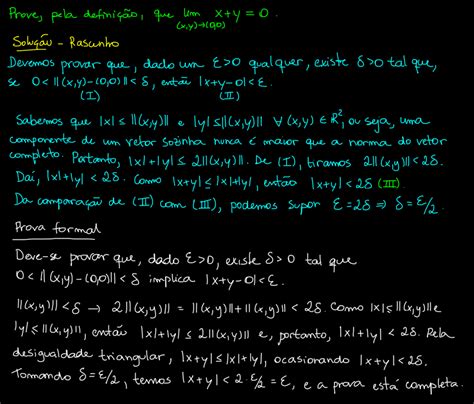 Prove, pela definição, que lim x+y = 0.
(x,y)→(0,0)
Solução - Rascunho
Devemos provar que, dado um ε>0 qualquer, existe δ>0 tal que,
se 0<||(x,y)-(0,0)||<δ, então |x+y-0|<ε.
(I) (II)
Sabemos que |x|≤||(x,y)|| e |y|≤||(x,y)|| ∀ (x,y) ∈ ℝ², ou seja, uma
componente de um vetor sozinha nunca é maior que a norma do vetor
completo. Portanto, |x|+|y| ≤ 2||(x,y)||. De (I), tiramos 2||(x,y)|| < 2δ.
Daí, |x|+|y| < 2δ. Como |x+y| ≤ |x|+|y|, então |x+y| < 2δ (III).
Da comparação de (II) com (III), podemos supor ε=2δ ⇒ δ=ε/2.
Prova formal
Deve-se provar que, dado ε>0, existe δ>0 tal que
0<||(x,y)-(0,0)||<δ implica |x+y-0|<ε.
||(x,y)||<δ → 2||(x,y)|| = ||(x,y)||+||(x,y)|| < 2δ. Como |x|≤||(x,y)|| e
|y|≤||(x,y)||, então |x|+|y| ≤ 2||(x,y)|| e, portanto, |x|+|y| < 2δ. Pela
desigualdade triangular, |x+y|≤|x|+|y|, ocasionando |x+y|<2δ.
Tomando δ=ε/2, temos |x+y|<2·ε/2=ε, e a prova está completa.